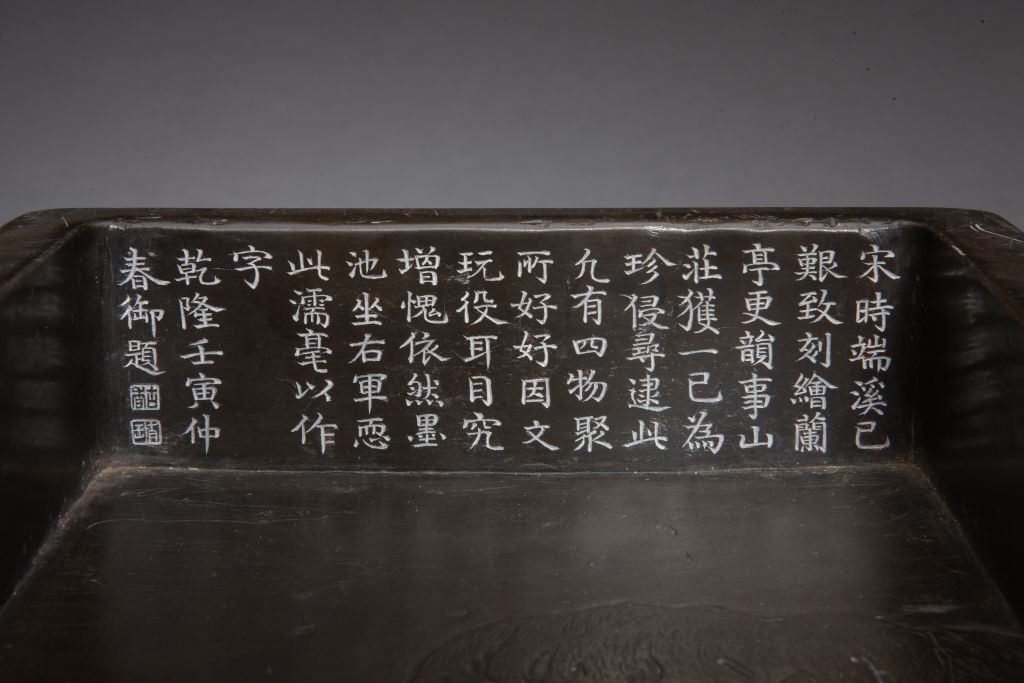 宋時端溪已
艱致刻繪蘭
亭更韻事山
莊獲一已為
珍侵尋逮此
凡有四物聚
所好好因文
玩役耳目究
增愧依然墨
池坐右軍恧
此濡毫以作
字
乾隆壬寅仲
春御題